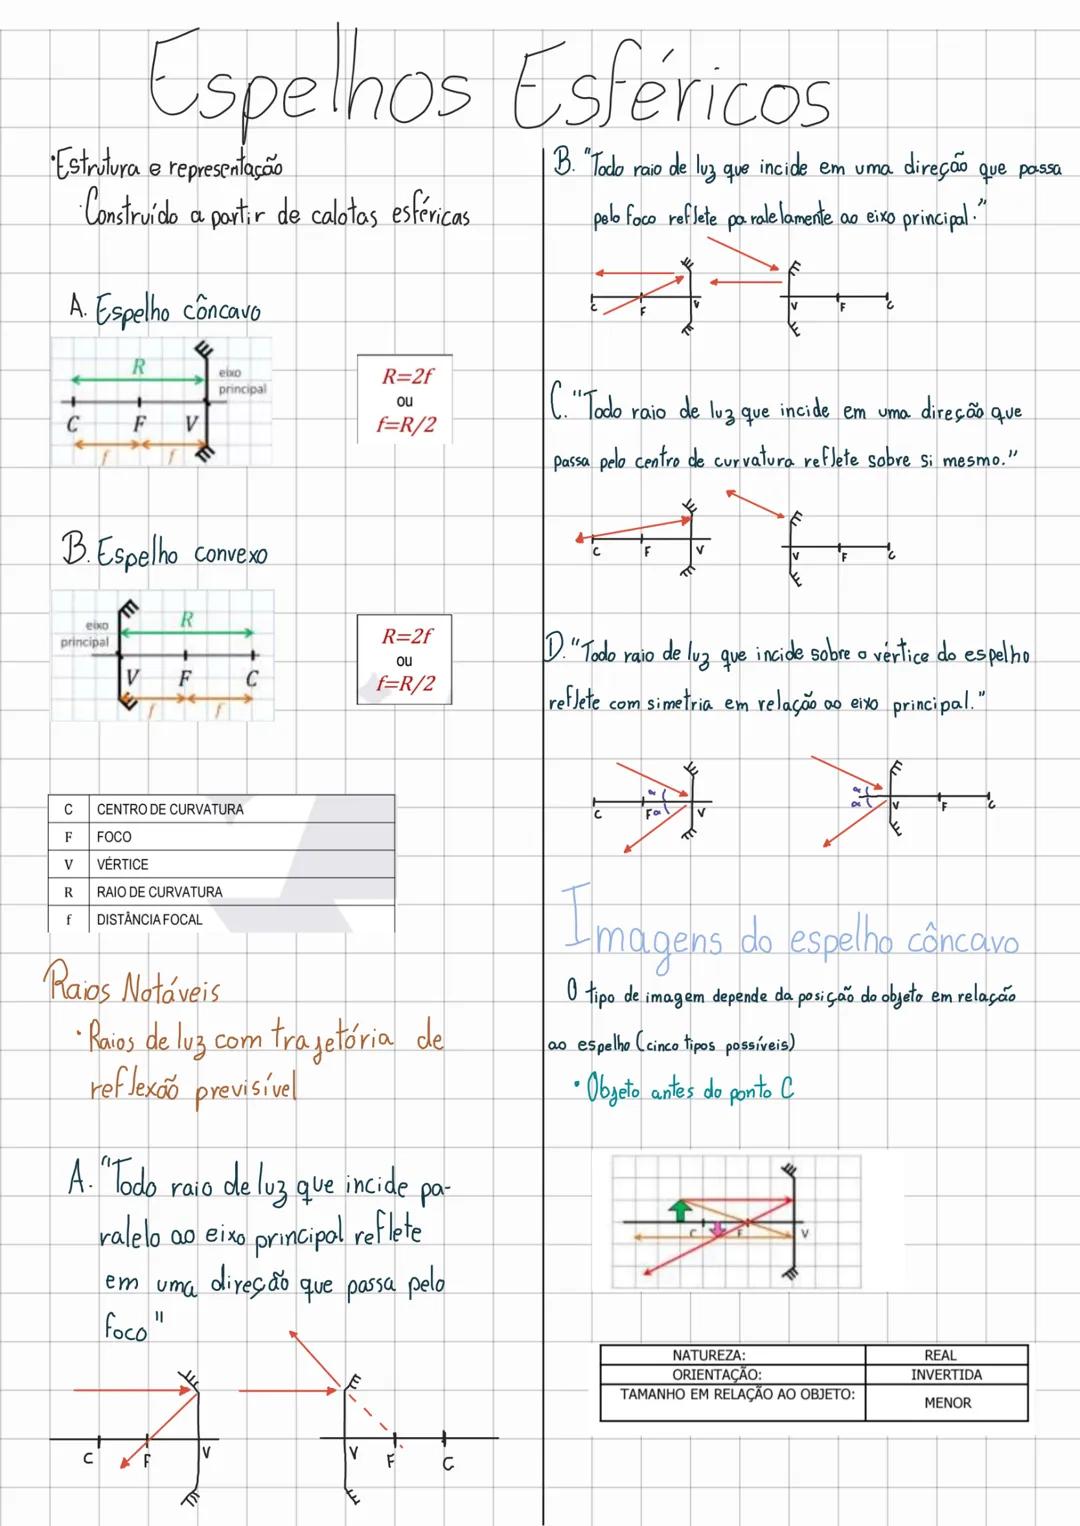 Espelhos Esféricos
·Estrutura e representação
·Construído a partir de calotas esféricas
A. Espelho côncavo
R
eixo
principal
C F V
f f
R=2f
ou
f=R/2
B. Espelho convexo
eixo
principal
R
V F C
f f
R=2f
ou
f=R/2
C CENTRO DE CURVATURA
F FOCO
V VÉRTICE
R RAIO DE CURVATURA
f DISTÂNCIA FOCAL
Raios Notáveis
·Raios de luz com trajetória de
reflexão previsível
A. "Todo raio de luz que incide pa-
ralelo ao eixo principal reflete
em uma direção que passa pelo
foco"
C F V
V F C
B. "Todo raio de luz que incide em uma direção que passa
pelo foco reflete paralelamente ao eixo principal."
C F V
V F C
C. "Todo raio de luz que incide em uma direção que
passa pelo centro de curvatura reflete sobre si mesmo."
C F V
V F C
D. "Todo raio de luz que incide sobre o vértice do espelho
reflete com simetria em relação ao eixo principal."
α
C F α V
α
α V F C
Imagens do espelho côncavo
O tipo de imagem depende da posição do objeto em relação
ao espelho (cinco tipos possíveis)
· Objeto antes do ponto C
C F V
NATUREZA: REAL
ORIENTAÇÃO: INVERTIDA
TAMANHO EM RELAÇÃO AO OBJETO: MENOR